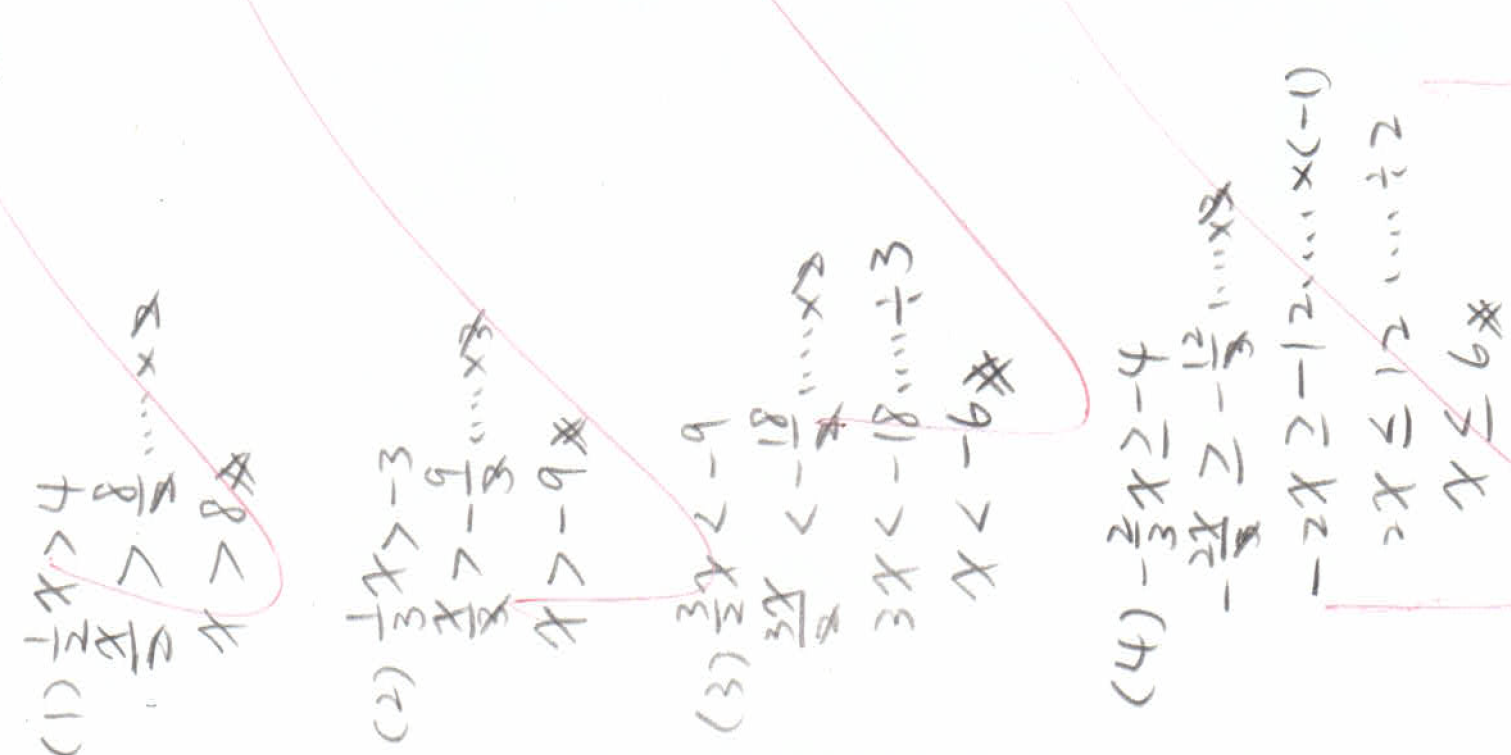 (1) 1/2 x > 4
x/2 > 8/2 ..... × 2
x > 8 #
(2) 1/3 x > -3
x/3 > -9/3 ..... ×3
x > -9 #
(3) 3/2 x < -9
3x/2 < -18/2 ..... ×2
3x < -18 ..... ÷3
x < -6 #
(4) -2/3 x ≥ -4
-2x/3 ≥ -12/3 ..... ×3
-2x ≥ -12 ..... ×(-1)
2x ≤ 12 ..... ÷2
x ≤ 6 #